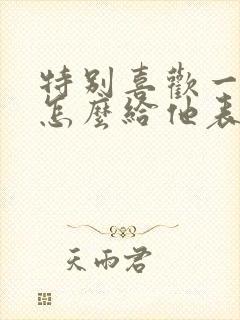 特別喜歡一
怎麼給他表
天雨君